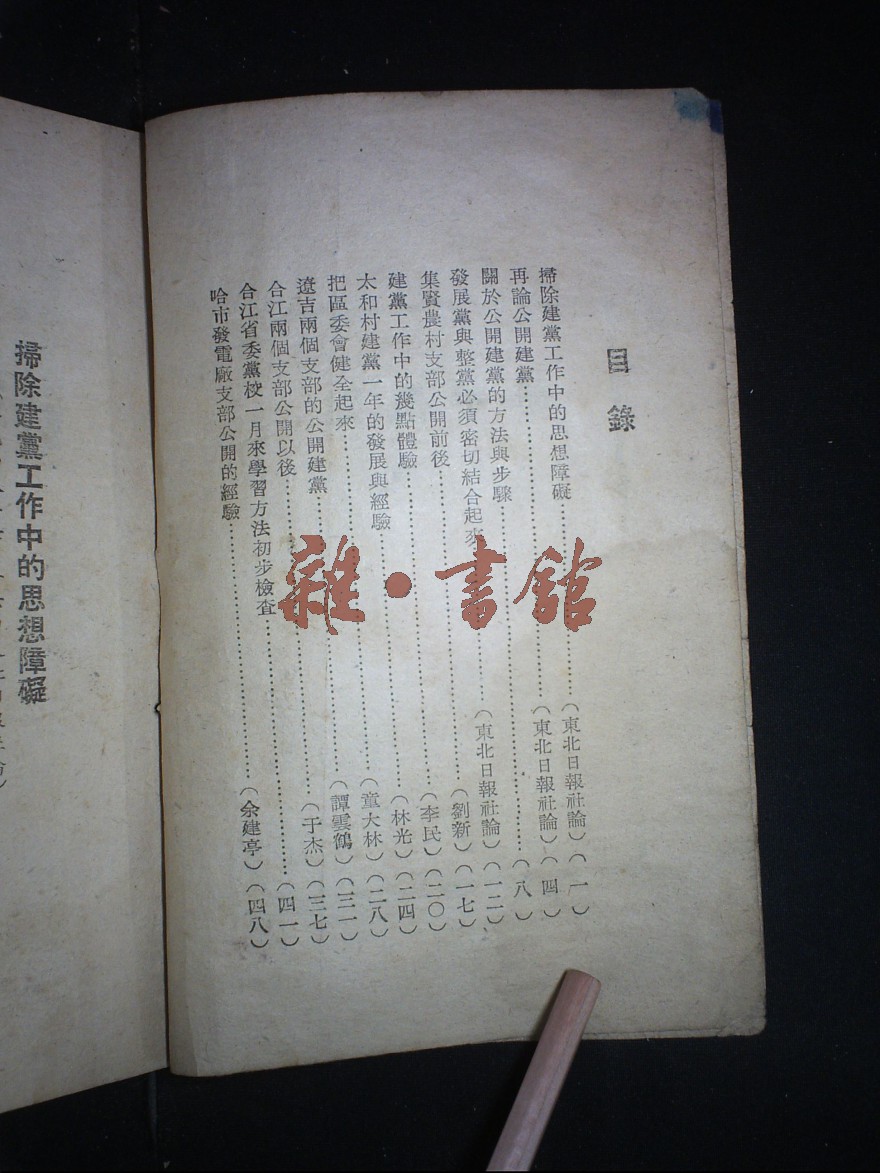 目錄
掃除建黨工作中的思想障礙……(東北日報社論)(一)
再論公開建黨……(東北日報社論)(四)
關於公開建黨的方法與步驟……(八)
發展黨與整黨必須密切結合起來……(東北日報社論)(一二)
集賢農村支部公開前後……(劉新)(一七)
建黨工作中的幾點體驗……(李民)(二〇)
太和村建黨一年的發展與經驗……(林光)(二四)
把區委會健全起來……(童大林)(二八)
遼吉兩個支部的公開建黨……(譚雲鶴)(三一)
合江兩個支部公開以後……(于杰)(三七)
合江省委黨校一月來學習方法初步檢查……(四一)
哈市發電廠支部公開的經驗……(余建亭)(四八)
掃除建黨工作中的思想障礙
雜·書館